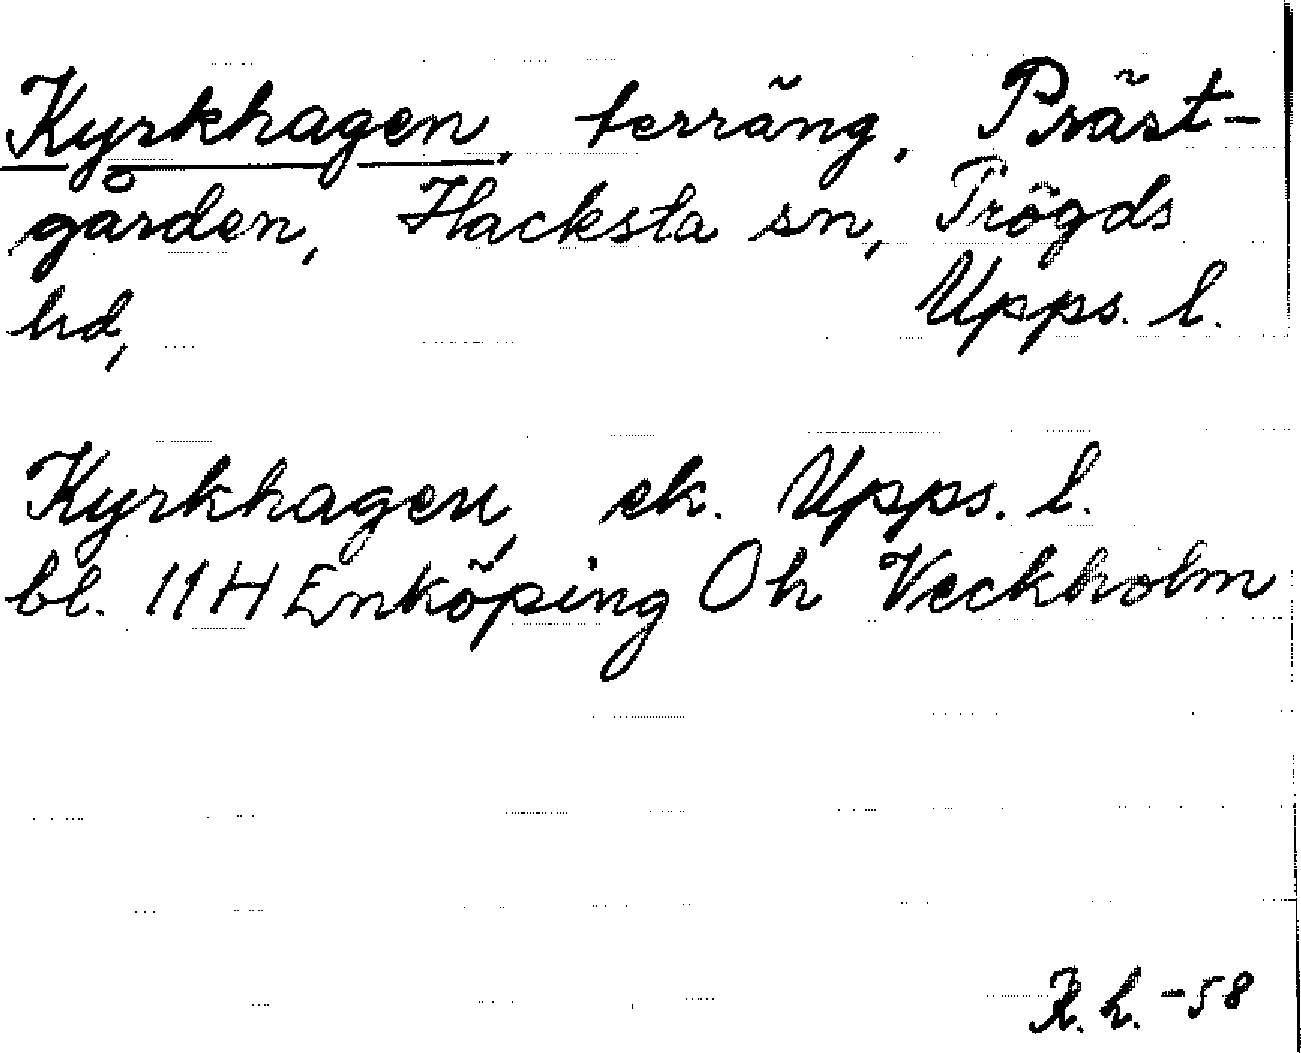 Kyrkhagen, terräng, Präst-
gården, Hacksta sn, Trögds
hd, Upps. l.
Kyrkhagen, ek. Upps. l.
bl. 11 H Enköping Oh Veckholm
K. h. -58